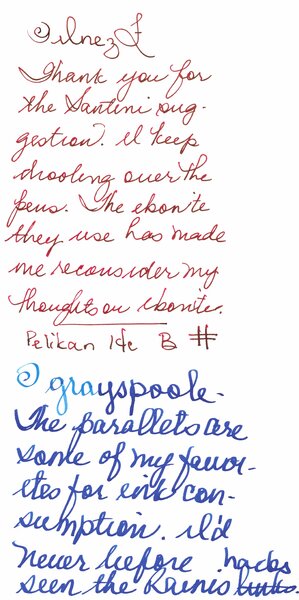 @ilnezF
Thank you for
the Santini sug-
gestion. I'll keep
drooling over the
pens. The ebonite
they use has made
me reconsider my
thoughts on ebonite.
Pelikan 14c B #
@grayspoole-
The parallels are
some of my favor-
ites for ink con-
sumption. I'd
never before hacks
seen the Rainis hints.